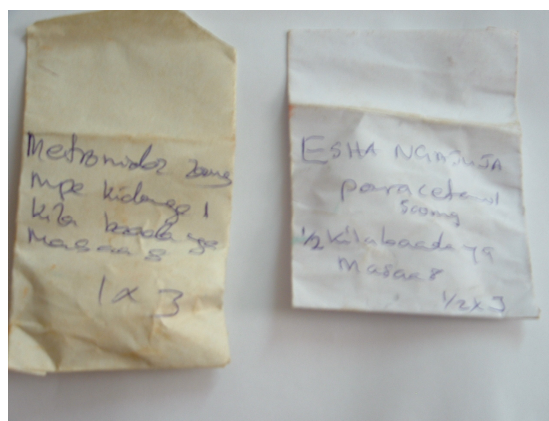 Metronidaz 200mg
mpe kidonge 1
kila baada ya
masaa 8
1 x 3
ESHA NGAJUJA
paracetamol
500mg
1/2 kila baada ya
masaa 8
1/2 x 3